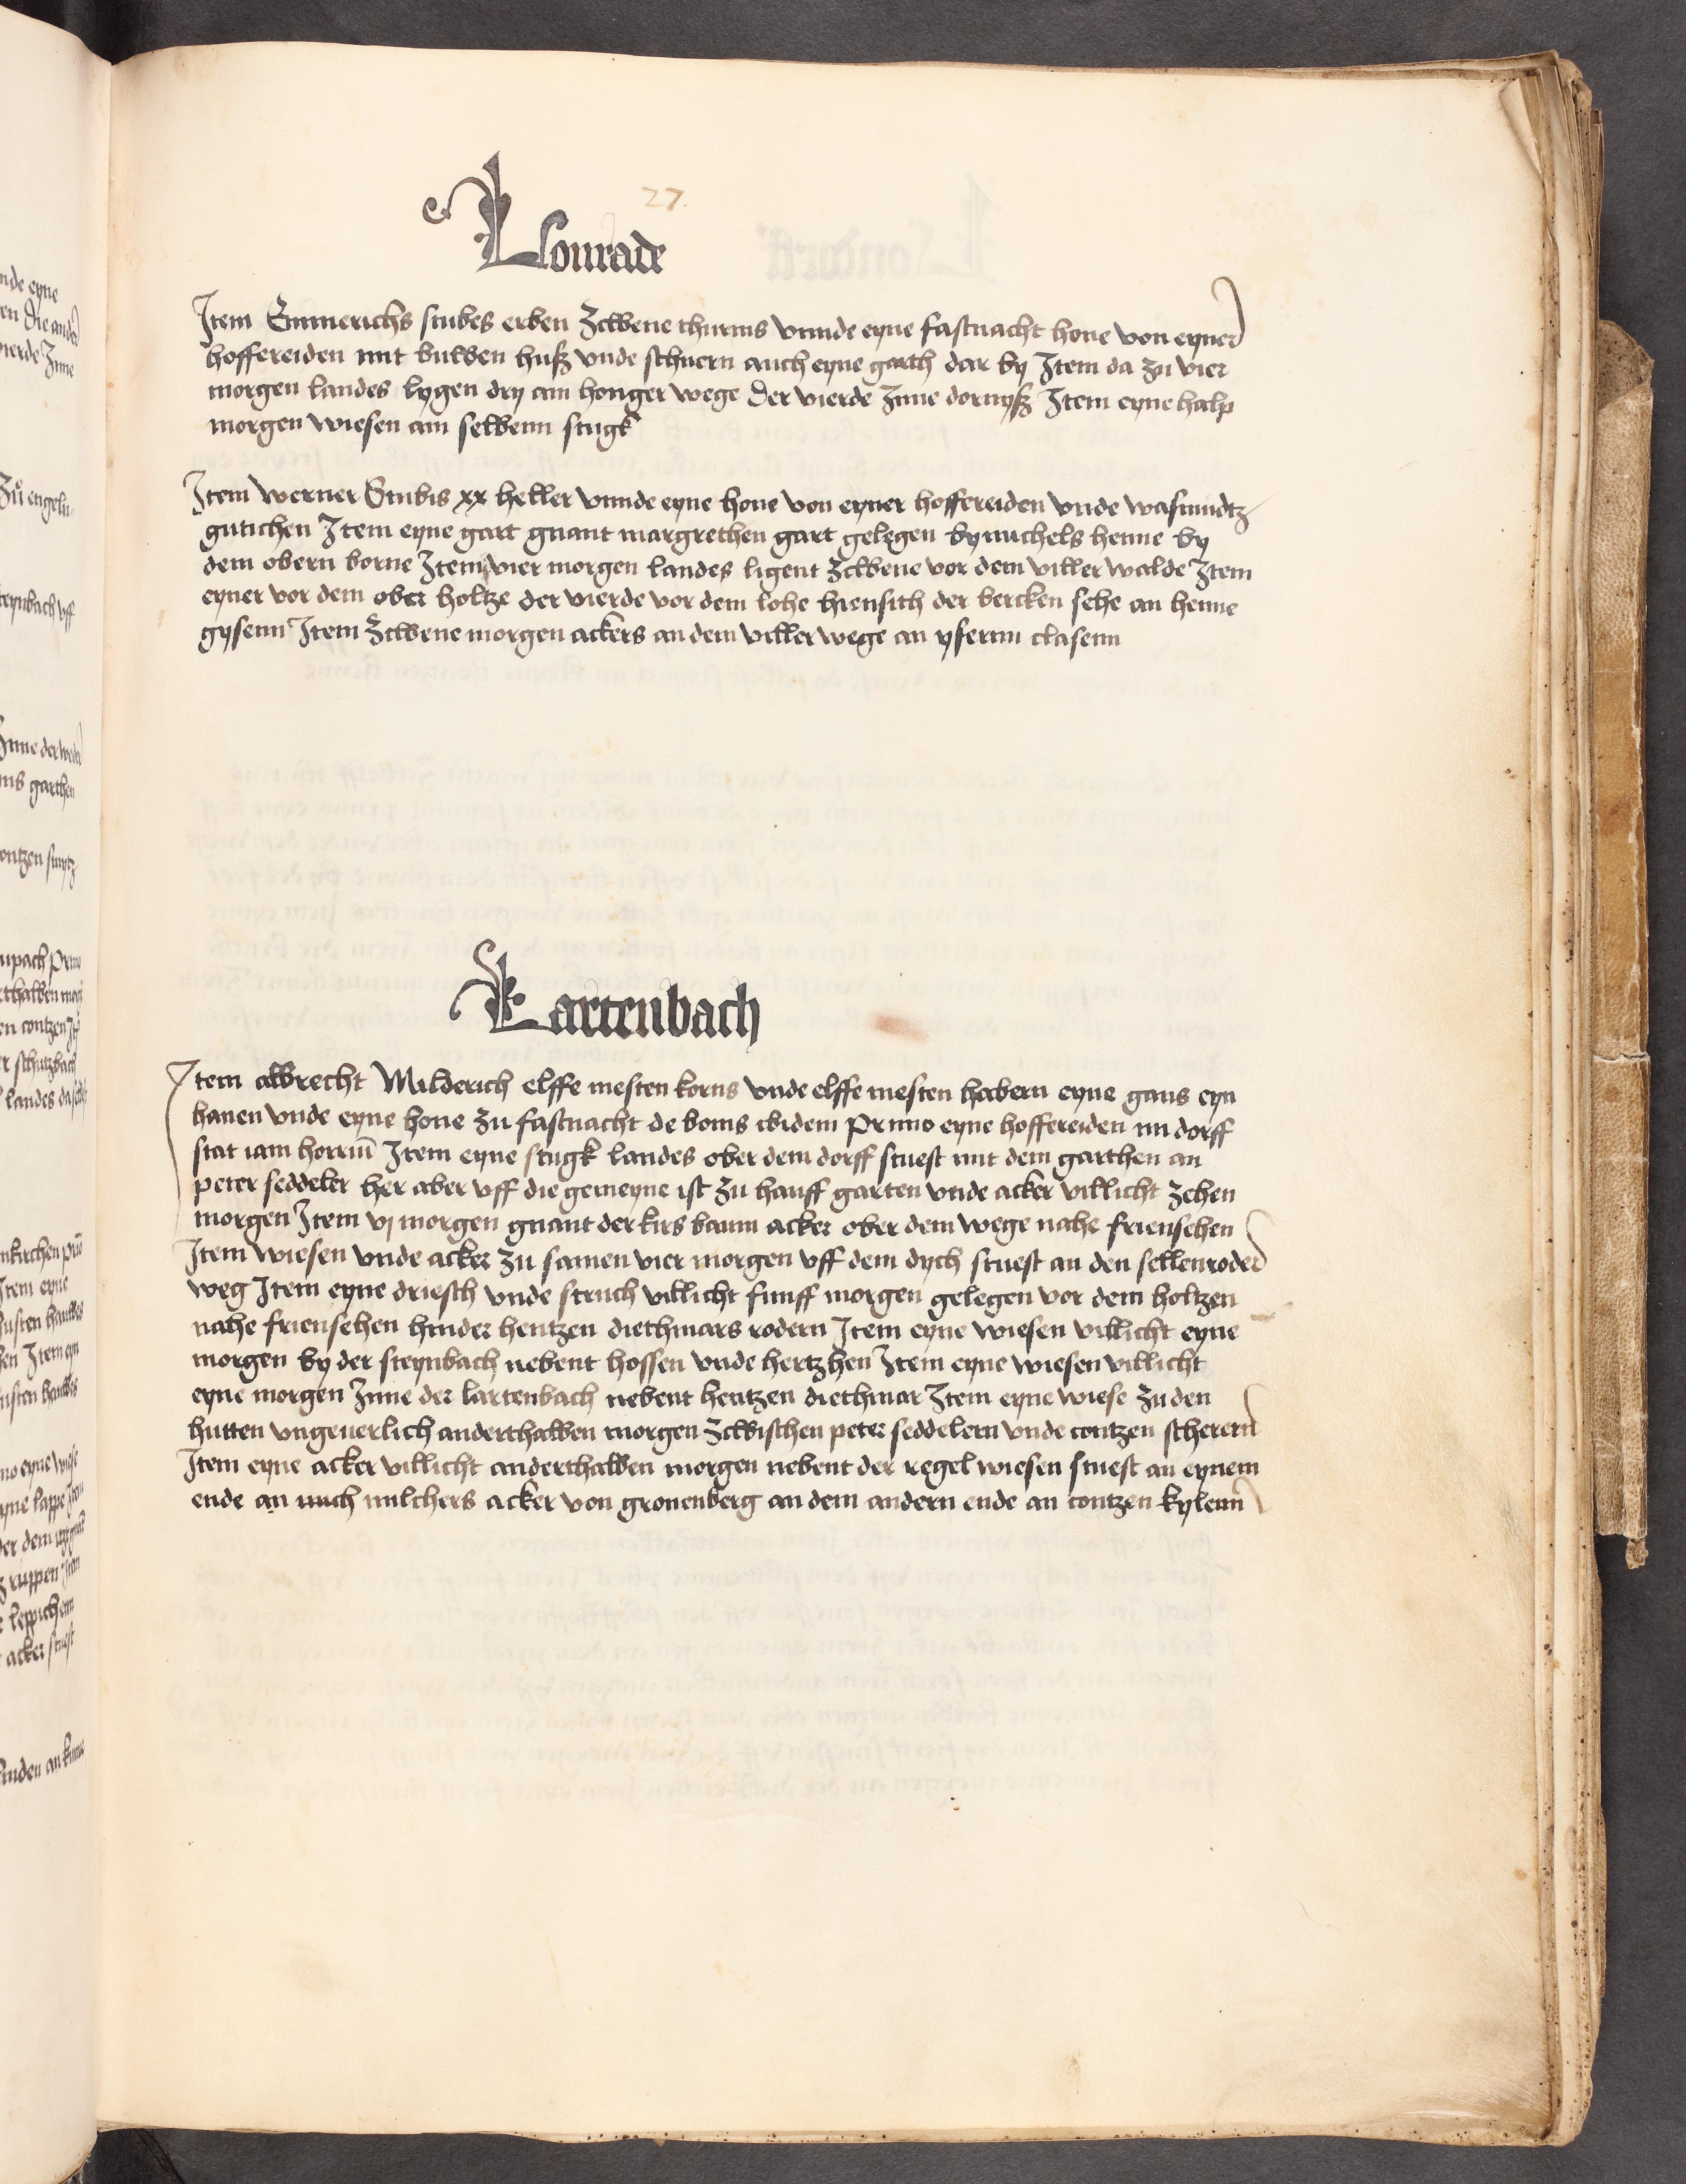 27.
Lonrade
Item Emmerichs stubes erben Zcwene thurnis vnnde eyne fastnacht hone von eyner
hoffereiden mit buwen huß vnde schuern auch eyne garth dar by Item da zu vier
morgen landes lygen dry am honger wege der vierde Inne dornyß Item eyne halp
morgen wiesen am selbenn stugk
Item werner Stubis xx heller vnnde eyne hone von eyner hoffereiden vnde wasmudtz
gutichen Item eyne gart gnant margrethen gart gelegen by michels henne by
dem obern borne Item vier morgen landes ligent Zcwene vor dem viller walde Item
eyner vor dem ober holtze der vierde vor dem lohe hiensith der bercken sehe an henne
gysenn Item Zcwene morgen ackers an dem viller wege an ysernn clasenn
Lartenbach
Item albrecht Milderich elffe mesten korns vnde elffe mesten habern eyne gans eyn
hanen vnde eyne hone zu fastnacht de bonis ibidem Primo eyne hoffereiden im dorff
stat iam horriũ Item eyne stugk landes ober dem dorff stuest mit dem garthen an
peter seddeler her aber vff die gemeyne ist zu hauff garten vnde acker villicht zehen
morgen Item vj morgen gnant der kirs baum acker ober dem wege nahe friensehen
Item wiesen vnde acker zu samen vier morgen vff dem dych stuest an den sellenroder
weg Item eyne driesch vnde struch villicht funff morgen gelegen vor dem holtzen
nahe friensehen hinder hentzen diethmars rodern Item eyne wiesen villicht eyne
morgen by der steynbach nebent hossen vnde hertzhen Item eyne wiesen villicht
eyne morgen Inne der lartenbach nebent hentzen diethmar Item eyne wiese zu den
hutten vngeuerlich anderthalben morgen Zcwischen peter seddelern vnde contzen scherern
Item eyne acker villicht anderthalben morgen nebent der regel wiesen stuest an eynem
ende an much milchers acker von gronenberg an dem andern ende an contzen kylenn